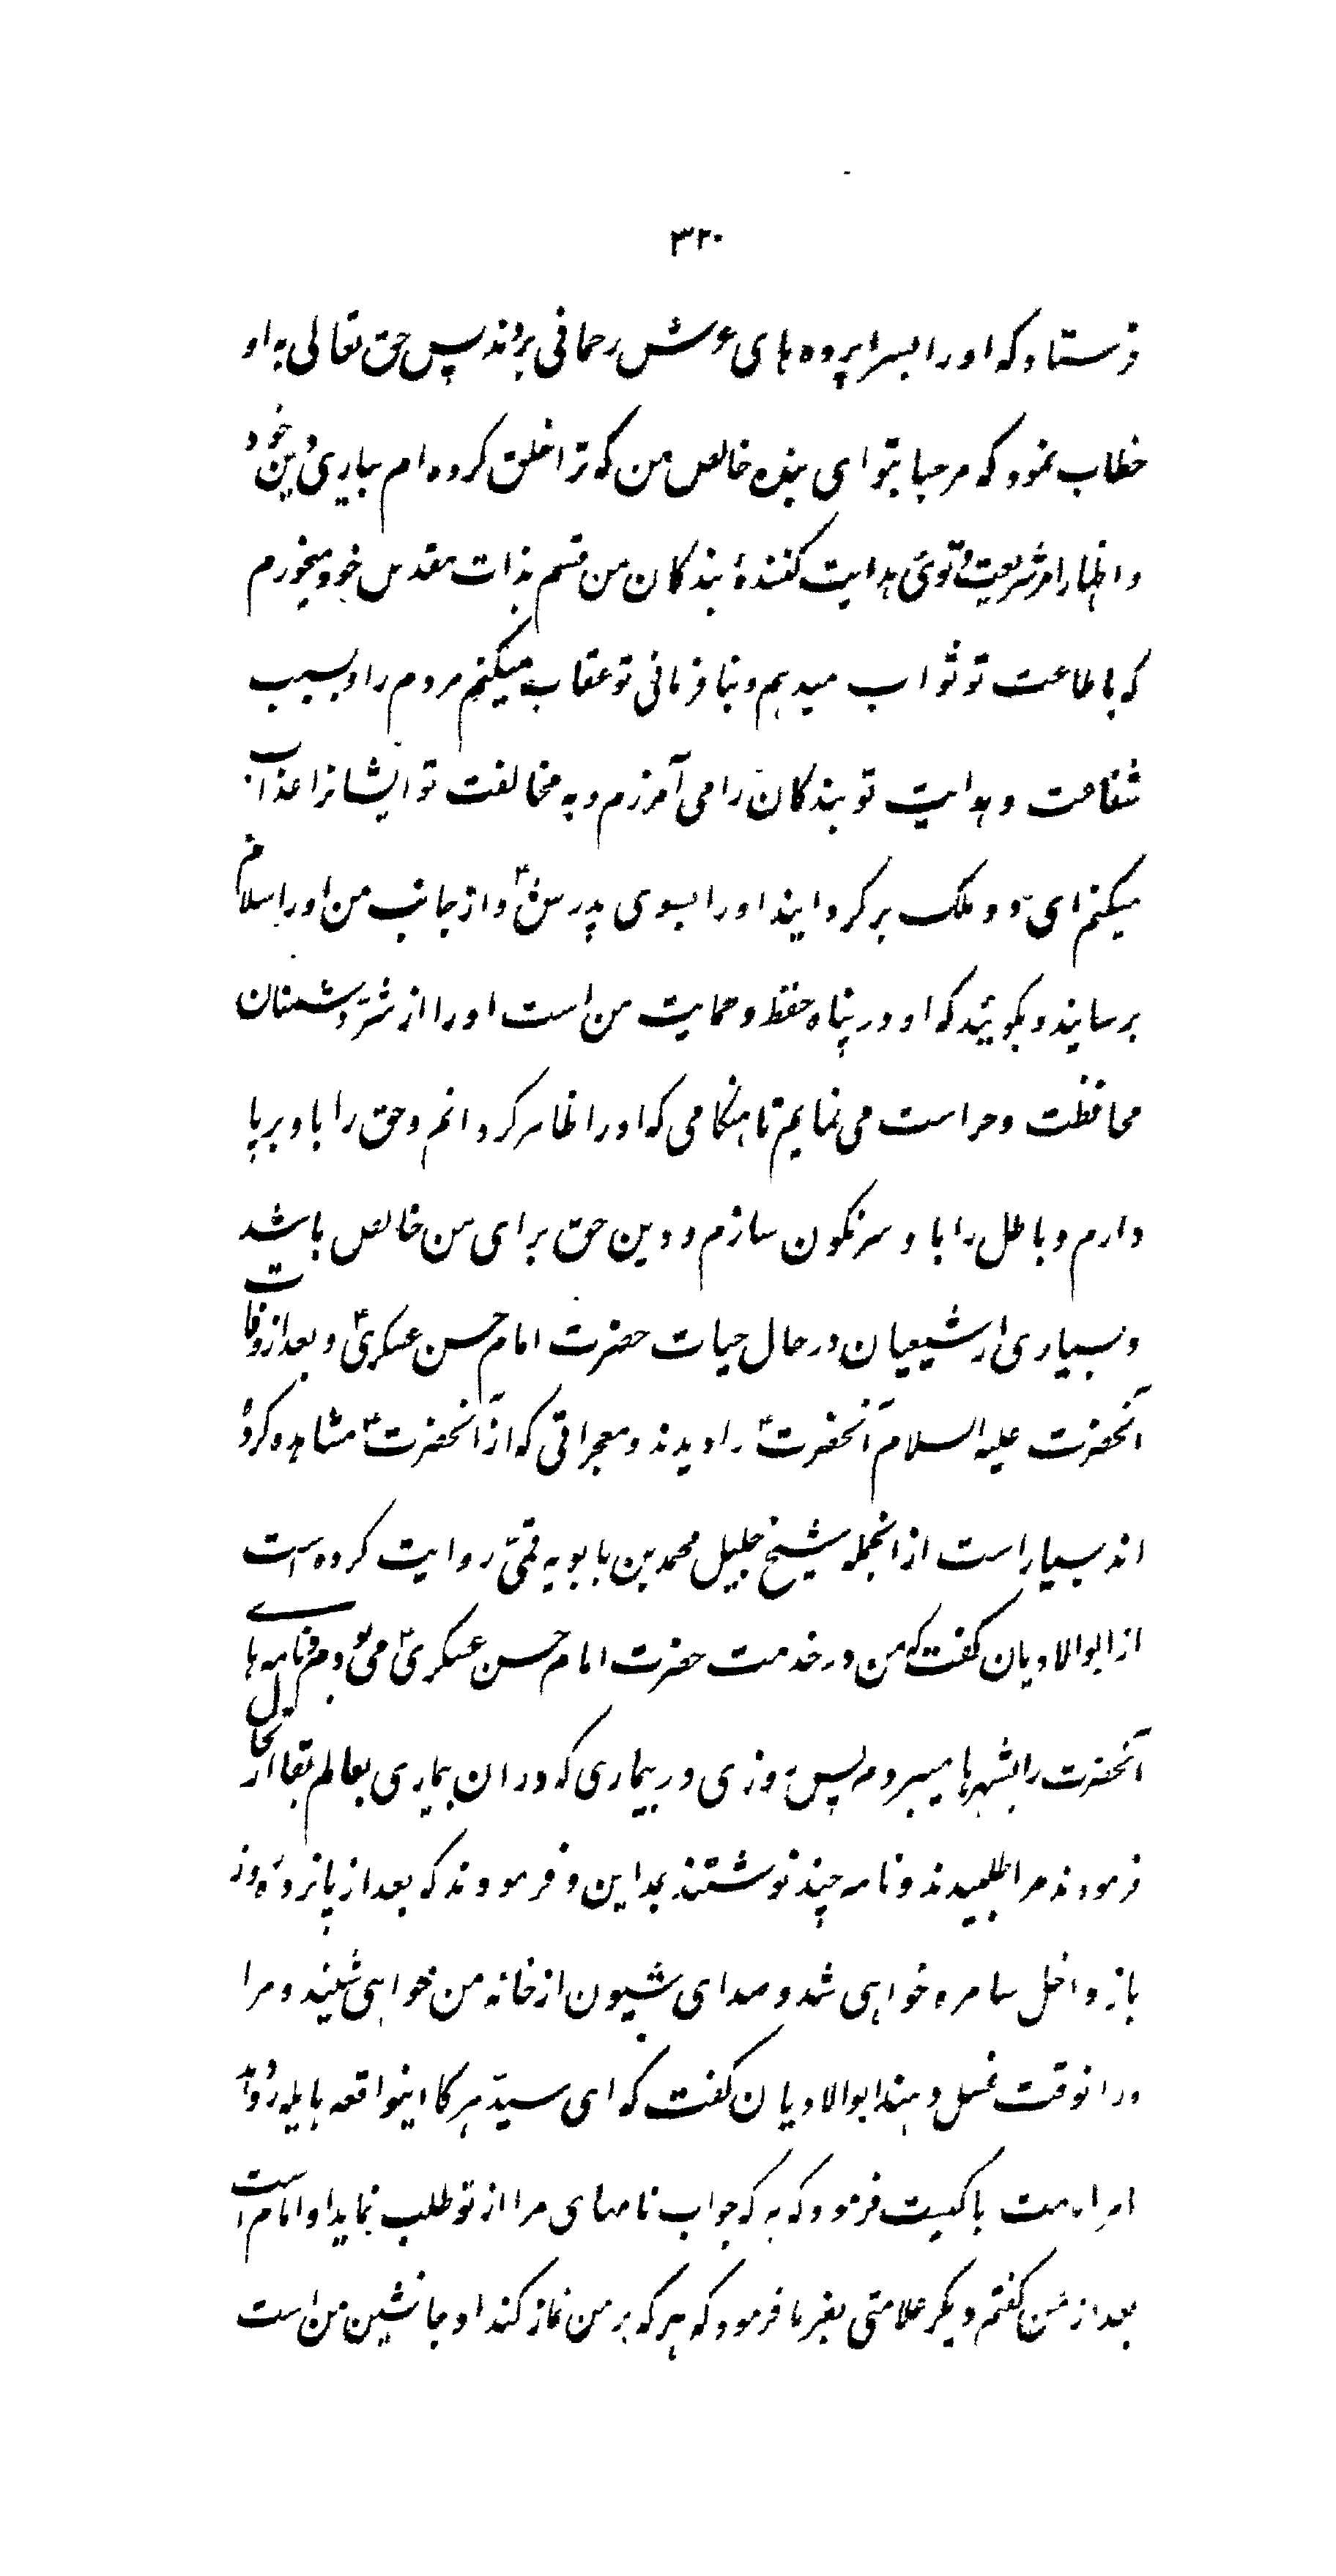 ۳۲۰
فرستاد که او را بسراپرده های عرش رحمانی بردند پس حق تعالی به او
خطاب نمود که مرحبا بتو ای بنده خالص من که ترا خلق کرده ام بیاری دین خود
و اظهار امر شریعت و توئی هدایت کنندهٔ بندکان من قسم بذات مقدس خود میخورم
که باطاعت تو ثواب میدهم و بنا فرمانی تو عقاب میکنم مردم را و بسبب
شفاعت و هدایت تو بندکان را می آمرزم و به مخالفت تو ایشانرا عذاب
میکنم ای دو ملک بر کردانید او را بسوی پدرش و از جانب من او را سلام
برسانید و بکوئید که او در پناه حفظ و حمایت من است او را از شرّ دشمنان
محافظت و حراست می نمایم تا هنکامی که او را ظاهر کردانم و حق را باو برپا
دارم و باطل را باو سرنکون سازم و دین حق برای من خالص باشد
و بسیاری از شیعیان در حال حیات حضرت امام حسن عسکریؑ و بعد از وفات
آنحضرت علیه السلام آنحضرتؑ را دیدند و معجزاتی که از آنحضرتؑ مشاهده کرده
اند بسیار است از انجمله شیخ جلیل محمد بن بابویه قمّی روایت کرده است
از ابوالادیان کفت که من در خدمت حضرت امام حسن عسکریؑ می بودم و نامه های
آنحضرت را بشهرها میبردم پس روزی در بیماری که در ان بیماری بعالم بقا ارتحال
فرمودند مرا طلبیدند و نامه چند نوشتند بمداین و فرمودند که بعد از پانزده روز
باز داخل سامره خواهی شد و صدای شیون از خانه من خواهی شنید و مرا
در انوقت غسل دهند ابوالادیان کفت که ای سیّد هر کاه اینواقعه هایله رو دهد
امر امامت با کیست فرمود که به که جواب نامهای مرا از تو طلب نماید او امام است
بعد از من کفتم دیکر علامتی بفرما فرمود که هر که بر من نماز کند او جانشین من است